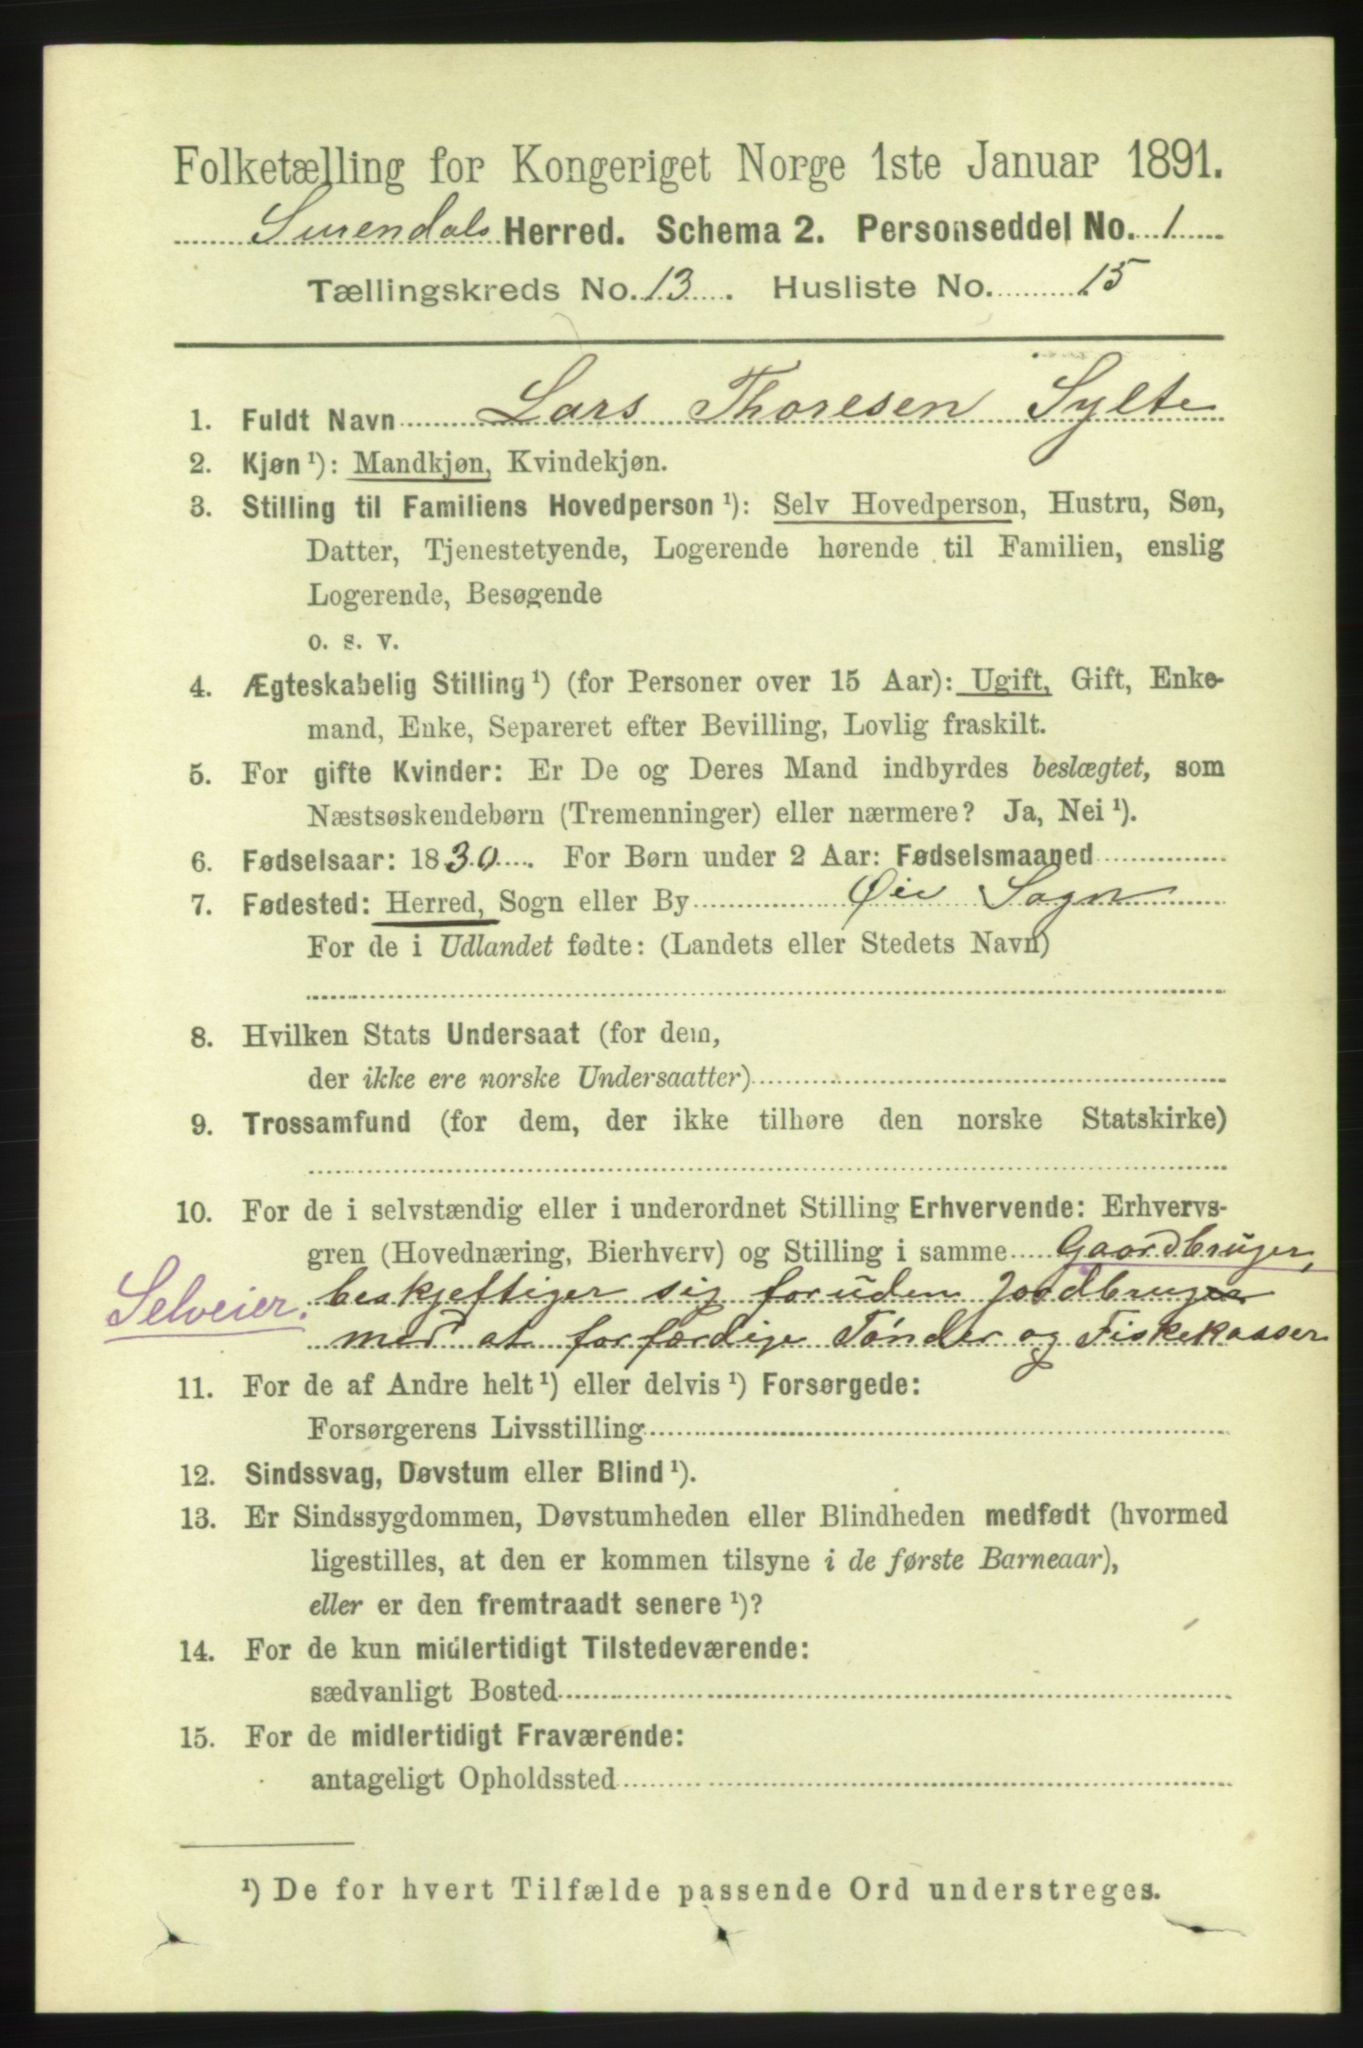 Folketælling for Kongeriget Norge 1ste Januar 1891.
Surendals Herred. Schema 2. Personseddel No. 1
Tællingskreds No. 13. Husliste No. 15
1. Fuldt Navn Lars Thoresen Sylte
2. Kjøn ¹): Mandkjøn, Kvindekjøn.
3. Stilling til Familiens Hovedperson ¹): Selv Hovedperson, Hustru, Søn,
Datter, Tjenestetyende, Logerende hørende til Familien, enslig
Logerende, Besøgende
o. s. v.
4. Ægteskabelig Stilling ¹) (for Personer over 15 Aar): Ugift, Gift, Enke-
mand, Enke, Separeret efter Bevilling, Lovlig fraskilt.
5. For gifte Kvinder: Er De og Deres Mand indbyrdes beslægtet, som
Næstsøskendebørn (Tremenninger) eller nærmere? Ja, Nei ¹).
6. Fødselsaar: 1830. For Børn under 2 Aar: Fødselsmaaned
7. Fødested: Herred, Sogn eller By Øie Sogn
For de i Udlandet fødte: (Landets eller Stedets Navn)
8. Hvilken Stats Undersaat (for dem,
der ikke ere norske Undersaatter)
9. Trossamfund (for dem, der ikke tilhøre den norske Statskirke)
10. For de i selvstændig eller i underordnet Stilling Erhvervende: Erhvervs-
gren (Hovednæring, Bierhverv) og Stilling i samme Gaardbruger,
Selveier. beskjeftiger sig foruden Jordbruget
med at forfærdige Tønder og Fiskekasser
11. For de af Andre helt ¹) eller delvis ¹) Forsørgede:
Forsørgerens Livsstilling
12. Sindssvag, Døvstum eller Blind ¹).
13. Er Sindssygdommen, Døvstumheden eller Blindheden medfødt (hvormed
ligestilles, at den er kommen tilsyne i de første Barneaar),
eller er den fremtraadt senere ¹)?
14. For de kun midlertidigt Tilstedeværende:
sædvanligt Bosted
15. For de midlertidigt Fraværende:
antageligt Opholdssted
¹) De for hvert Tilfælde passende Ord understreges.